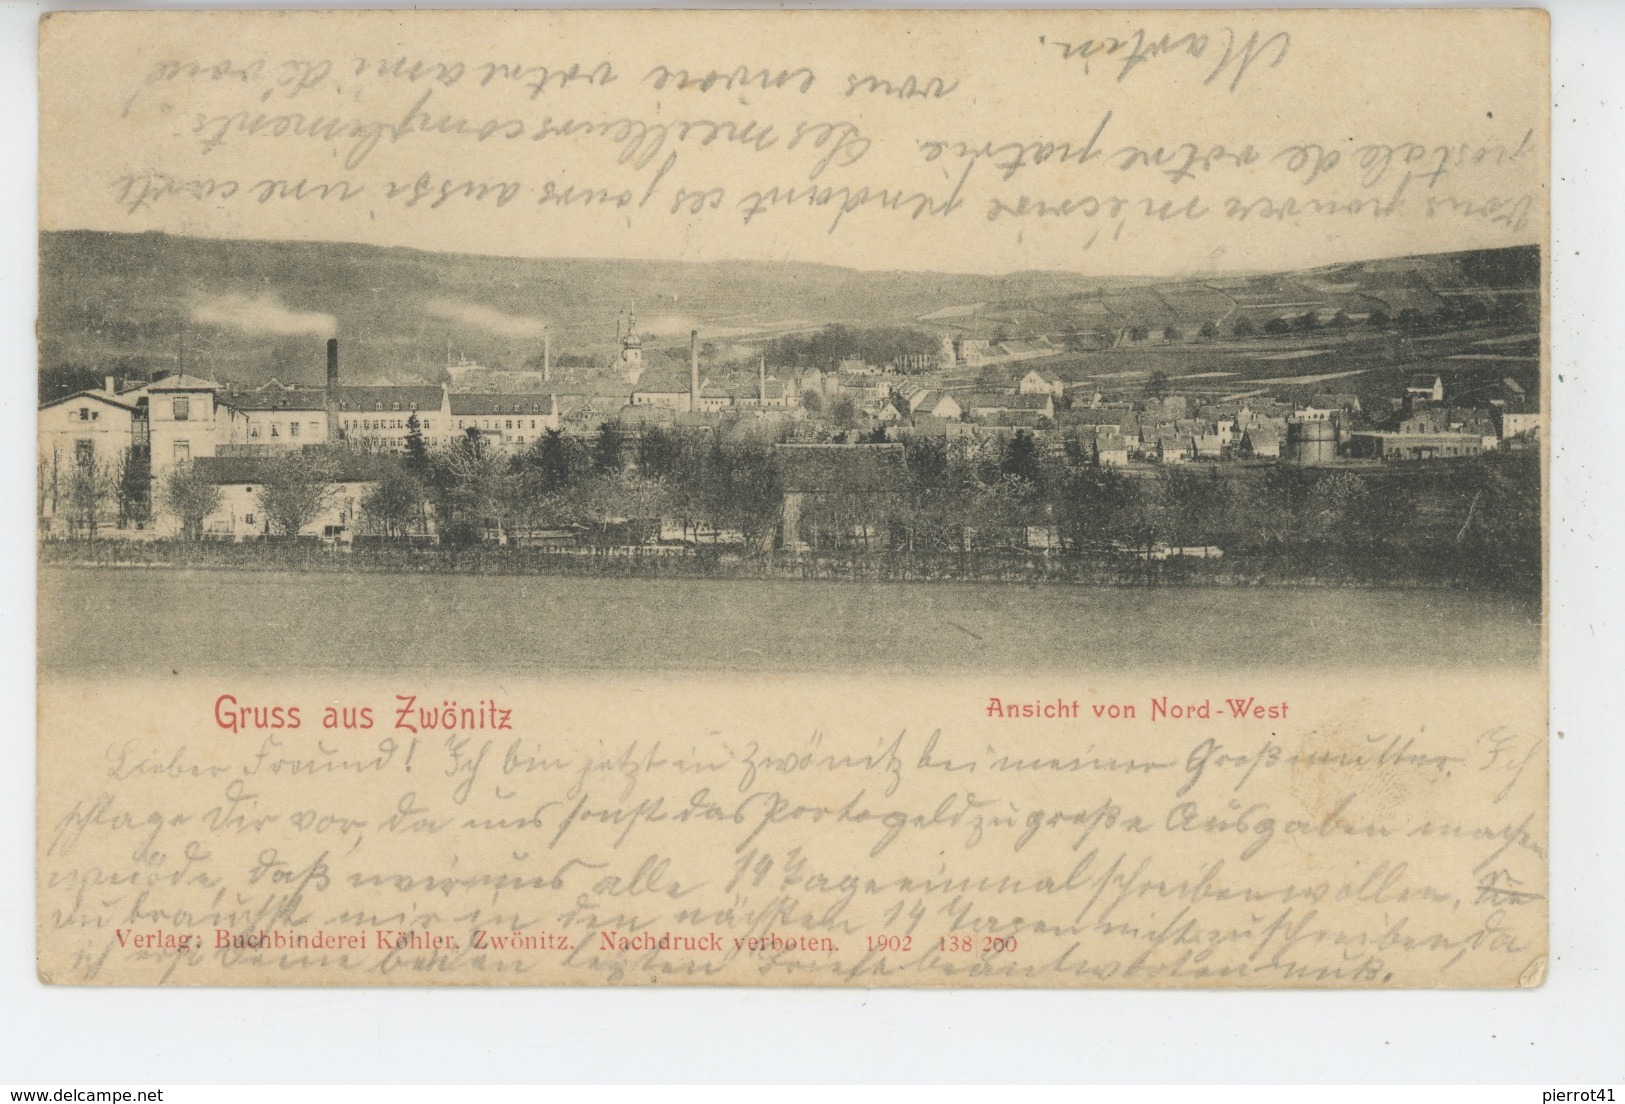 Vous pouvez m'écrire pendant ces jours aussi une carte
postale de votre patrie. Les meilleurs compliments
vous envoie votre ami dévoué
Martin.
Gruss aus Zwönitz
Ansicht von Nord-West
Lieber Freund! Ich bin jetzt in Zwönitz bei meiner Großmutter. Ich
schlage Dir vor, da uns sonst das Portogeld zu große Ausgaben machen
würde, daß wir uns alle 14 Tage einmal schreiben wollen,
Du brauchst mir in den nächsten 14 Tagen nicht zu schreiben, da
ich erst Deine beiden letzten Briefe beantworten muß.
Verlag: Buchbinderei Köhler, Zwönitz. Nachdruck verboten. 1902 138 200
pierrot41